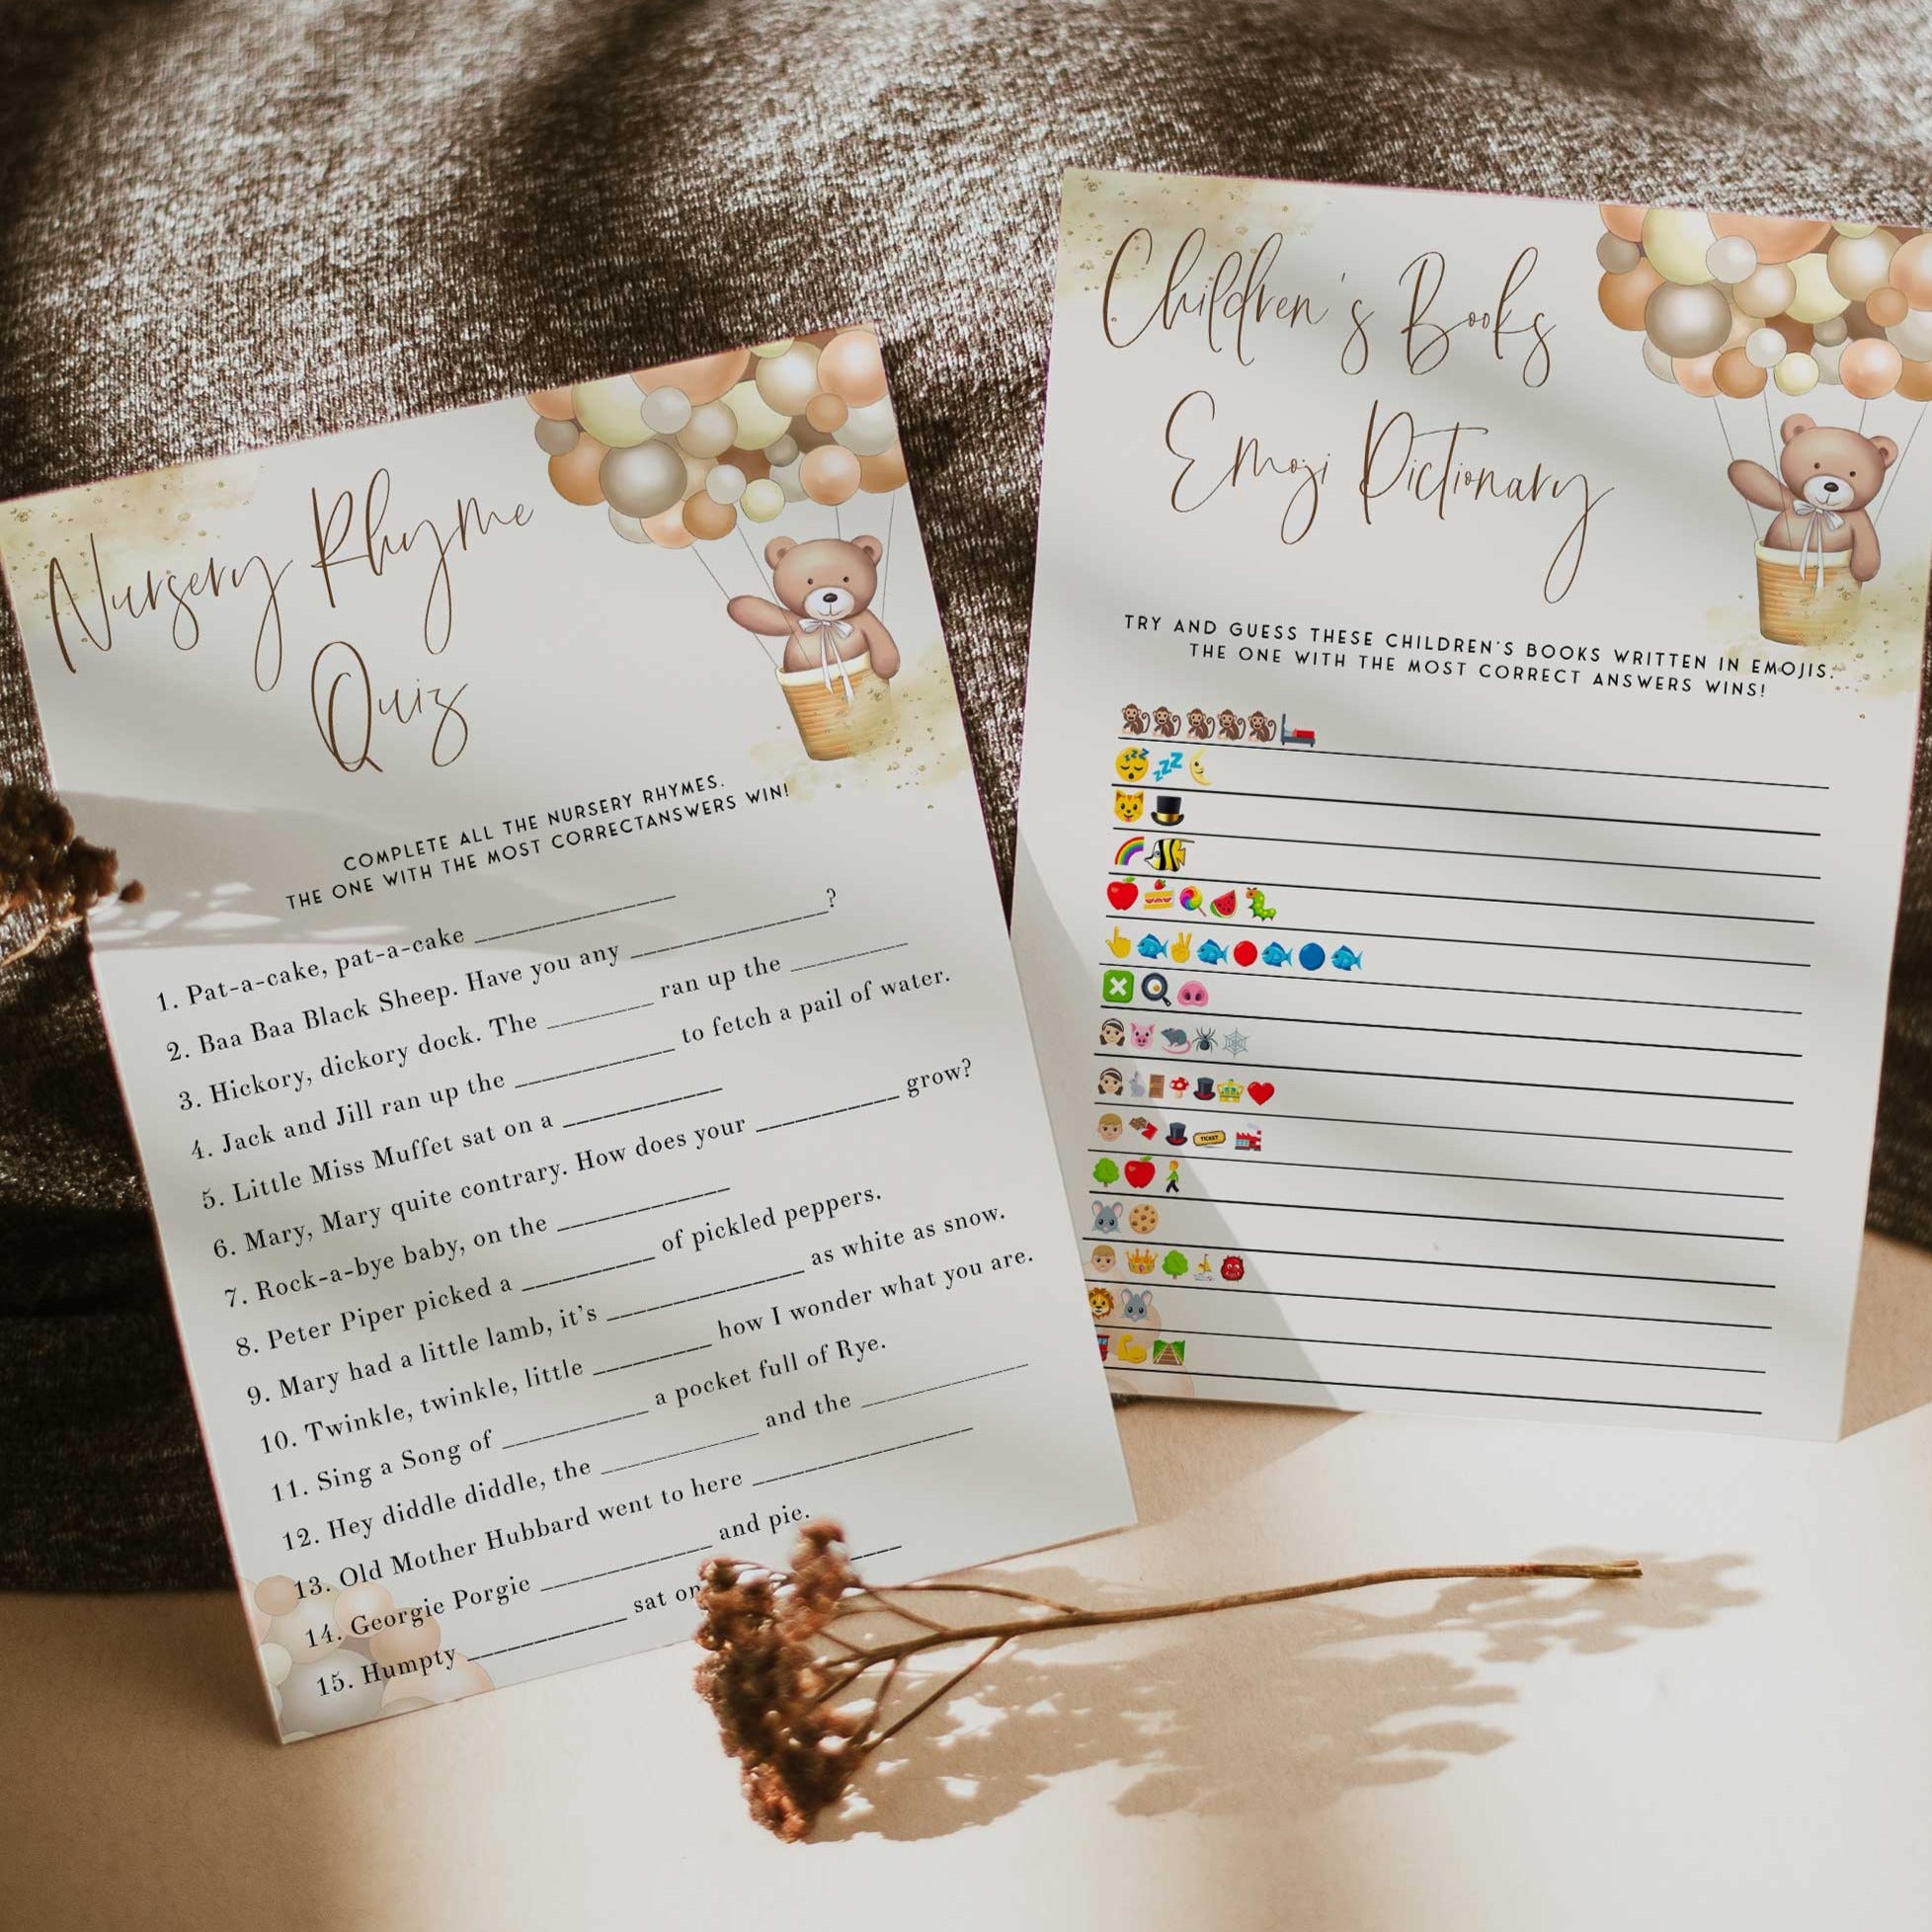 Nursery Rhyme
Quiz
COMPLETE ALL THE NURSERY RHYMES.
THE ONE WITH THE MOST CORRECTANSWERS WIN!
1. Pat-a-cake, pat-a-cake ____________
2. Baa Baa Black Sheep. Have you any ____________?
3. Hickory, dickory dock. The ________ ran up the ________
4. Jack and Jill ran up the ____________ to fetch a pail of water.
5. Little Miss Muffet sat on a ____________
6. Mary, Mary quite contrary. How does your __________ grow?
7. Rock-a-bye baby, on the ____________
8. Peter Piper picked a __________ of pickled peppers.
9. Mary had a little lamb, it's ______________ as white as snow.
10. Twinkle, twinkle, little __________ how I wonder what you are.
11. Sing a Song of ____________ a pocket full of Rye.
12. Hey diddle diddle, the ____________ and the ____________
13. Old Mother Hubbard went to here ________________
14. Georgie Porgie ______________ and pie.
15. Humpty ____________ sat on
Children's Books
Emoji Pictionary
TRY AND GUESS THESE CHILDREN'S BOOKS WRITTEN IN EMOJIS.
THE ONE WITH THE MOST CORRECT ANSWERS WINS!
TICKET